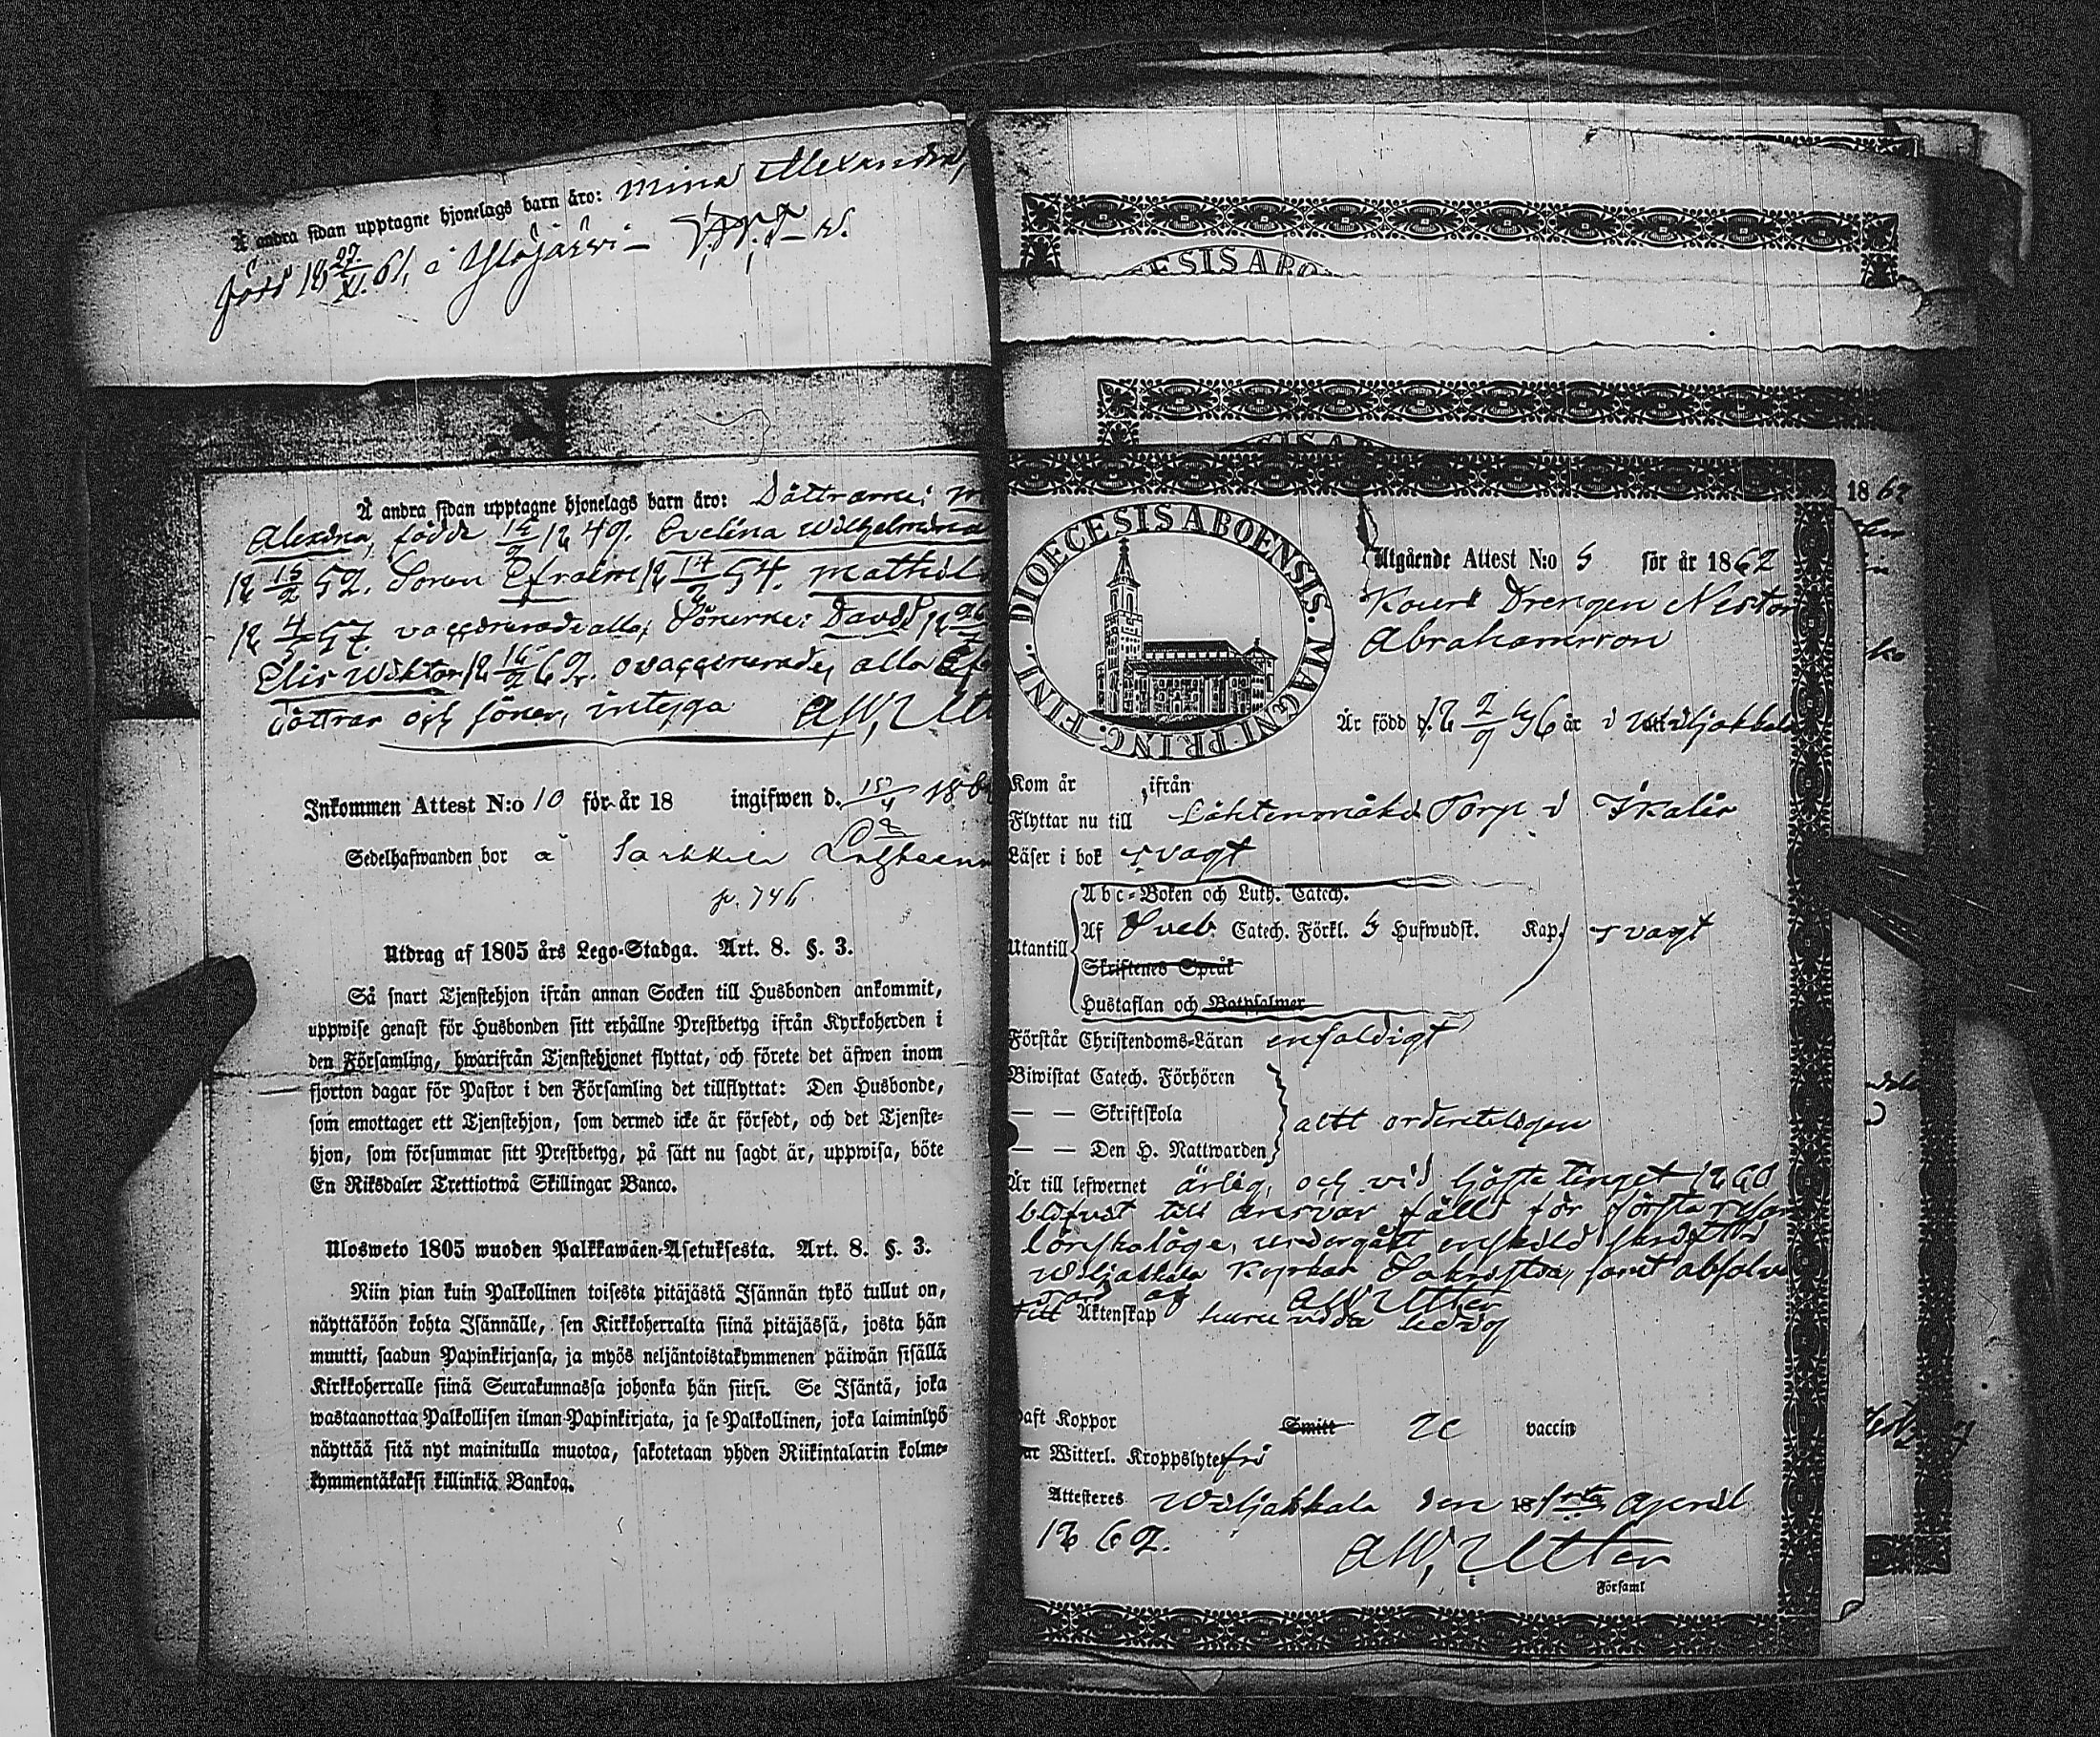 Å andra sidan upptagne hjonelags barn äro: Mina Alexandra,
född 18 27/XI. 61, i Ylöjärwi –
Å andra sidan upptagne hjonelags barn äro: Döttrarne;
Alexdra, födde 49. Evelina Wilhelmina
18 15/2 52. Sonen Efraim 18 14/2 54. Mathil
18 4/5 57. vaccinerade alla; Sönerne: David
Elis Wiktor 18 62. ovaccinerade, alla
döttrar och söner, intyga A.W. Utt
Inkommen Attest N:o 10 för år 18 ingifwen d. 15/4 186
Sedelhafwanden bor å Sarkkila
p. 746.
Utdrag af 1805 års Lego-Stadga. Art. 8. §. 3.
Så snart Tjenstehjon ifrån annan Socken till Husbonden ankommit,
uppwise genast för Husbonden sitt erhållne Prestbetyg ifrån Kyrkoherden i
den Församling, hwarifrån Tjenstehjonet flyttat, och förete det äfwen inom
fjorton dagar för Pastor i den Församling det tillflyttat: Den Husbonde,
som emottager ett Tjenstehjon, som dermed icke är försedt, och det Tjenste-
hjon, som försummar sitt Prestbetyg, på sätt nu sagdt är, uppwisa, böte
En Riksdaler Trettiotwå Skillingar Banco.
Ulosweto 1805 wuoden Palkkawäen-Asetuksesta. Art. 8. §. 3.
Niin pian kuin Palkollinen toisesta pitäjästä Isännän tykö tullut on,
näyttäköön kohta Isännälle, sen Kirkkoherralta siinä pitäjässä, josta hän
muutti, saadun Papinkirjansa, ja myös neljäntoistakymmenen päiwän sisällä
Kirkkoherralle siinä Seurakunnassa johonka hän siirsi. Se Isäntä, joka
wastaanottaa Palkollisen ilman Papinkirjata, ja se Palkollinen, joka laiminlyö
näyttää sitä nyt mainitulla muotoa, sakotetaan yhden Riikintalarin kolme-
kymmentäkaksi killinkiä Bankoa.
ESIS ABO
ESIS AB
18 62
DIOECESIS ABOENSIS. MAGNI PRINC. FINL.
Utgående Attest N:o 5 för år 1862
Drengen Nestor
Abrahamsson
Är född d. 18 2/9 36 år i Wiljakkala
Kom år , ifrån
Flyttar nu till Lähteenmäki Torp i Ikalis
Läser i bok svagt
Abc-Boken och Luth. Catech.
Utantill Af Sveb. Catech. Förkl. 5 Hufwudst. Kap. svagt
Skriftenes Språk
Hustaflan och Botpsalmer
Förstår Christendoms-Läran enfaldigt
Biwistat Catech. Förhören
— — Skriftskola allt ordenteligen
— — Den H. Nattwarden
Är till lefwernet ärlig, och vid höste tinget 1860
blifvit till ansvar fälld för första resan
lönskaläge, undergått enskild skrift i
Wiljakkala Kyrkas Sakristia, samt absolv
af A.W. Utter
till Äktenskap
haft Koppor Smitt vaccin
Witterl. Kroppslyte fri
Attesteres Wiljakkala den 1sta April
1862.
A.W. Utter
Församl